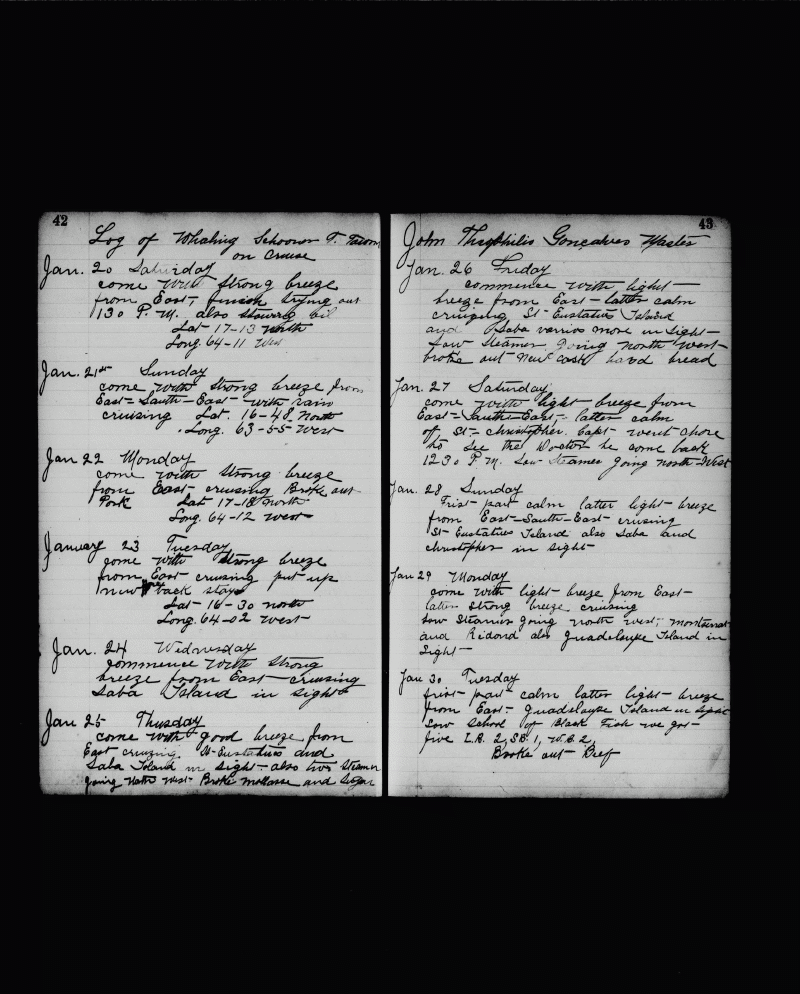 42
Log of Whaling Schooner T. Towne
on Cruise
Jan. 20 Saturday
come with strong breeze
from East, finish trying out
130 P.M. also stowing oil
Lat 17-13 North
Long. 64-11 West
Jan. 21st Sunday
come with strong breeze from
East-South-East- with rain
cruising Lat. 16-48 North
Long. 63-55 West
Jan 22 Monday
come with strong breeze
from East cruising Broke out
Pork Lat 17-18 north
Long. 64-12 west
January 23 Tuesday
come with strong breeze
from East cruising put up
new back stays
Lat-16-30 north
Long. 64-02 west
Jan. 24 Widnesday
Commence with strong
breeze from East-cruising
Saba Island in sight
Jan 25 Thusday
come with good breeze from
East cruzing St-Eustatius and
Saba Island in sight-also two steamer
going North West- Broke Mollasse and Sugar
43
John Theophilis Goncalves Master
Jan. 26 Friday
commence with light-
breeze from East-latter calm
cruizing St-Eustatius Island
and Saba varrios more in sight-
Saw Steamer going North West-
broke out new cask hard bread
Jan. 27 Saturday
come with light breeze from
East-South-East,- latter calm
of St-christopher, Capt- went chore
to see the Doctor he come back
1230 P.M. Saw Steamer going north-West
Jan. 28 Sunday
Frist part calm latter light-breeze
from East-South-East-cruising
St-Eustatius Island also Saba and
christopher in sight-
Jan 29 Monday
come with light-breeze from East-
latter strong breeze cruising
saw Steamer going north west; montserrat
and Ridond also Guadeloupe Island in
Sight-
Jan 30 Tuesday
frist-part-calm latter light-breeze
from East- Guadeloupe Island in sight
Saw School of Black Fish we got-
five L.B. 2, S.B. 1, W.B. 2,
Broke out-Beef